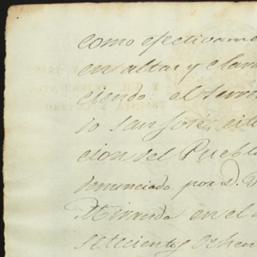 como efectivame
en altar y clam
ciendo el serm
io San José, ett
cion del Pueblo
denunciado por D.
Miranda en el
setecientos ochen